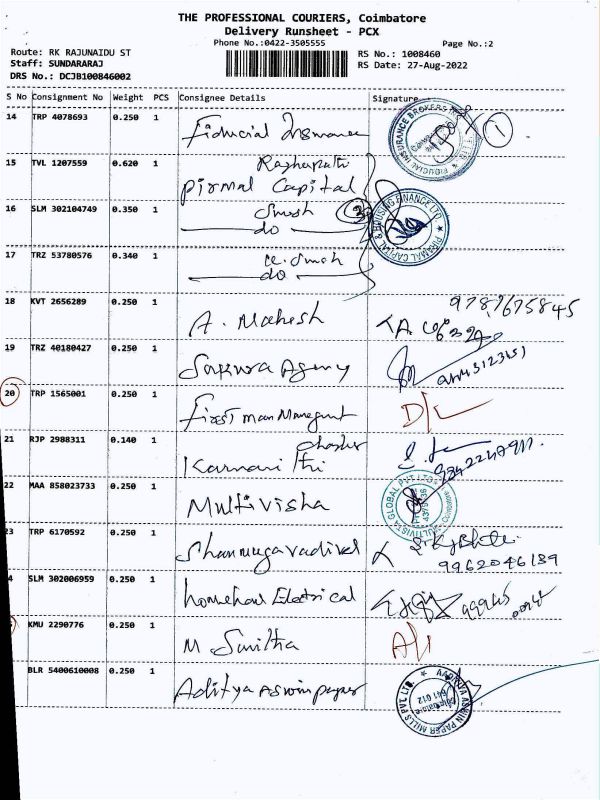 THE PROFESSIONAL COURIERS, Coimbatore
Delivery Runsheet - PCX
Phone No.:0422-3505555
Page No.:2
Route: RK RAJUNAIDU ST
Staff: SUNDARARAJ
DRS No.: DCJB100846002
RS No.: 1008460
RS Date: 27-Aug-2022
S No Consignment No Weight PCS Consignee Details Signature
14 TRP 4078693 0.250 1 Fiducial Insurance 1
15 TVL 1207559 0.620 1 Raghupathi
Pirmal Capital
16 SLM 302104749 0.350 1 do 3
PIRAMAL CAPITAL & HOUSING FINANCE LTD.
17 TRZ 53780576 0.340 1 do
18 KVT 2656289 0.250 1 A. Mahesh
9787675845
19 TRZ 40180427 0.250 1 Sakura Agency
20 TRP 1565001 0.250 1 First man Management D/L
21 RJP 2988311 0.140 1 Karnani
22 MAA 858023733 0.250 1 Multivisha
MULTIVISTA GLOBAL PVT LTD
23 TRP 6170592 0.250 1 Shanmugavadivel
9962046189
4 SLM 302006959 0.250 1 Electrical
KMU 2290776 0.250 1 M Sunitha
BLR 5400610008 0.250 1 Aditya Aswin paper
AADITYA ASWIN PAPER MILLS PVT LTD.